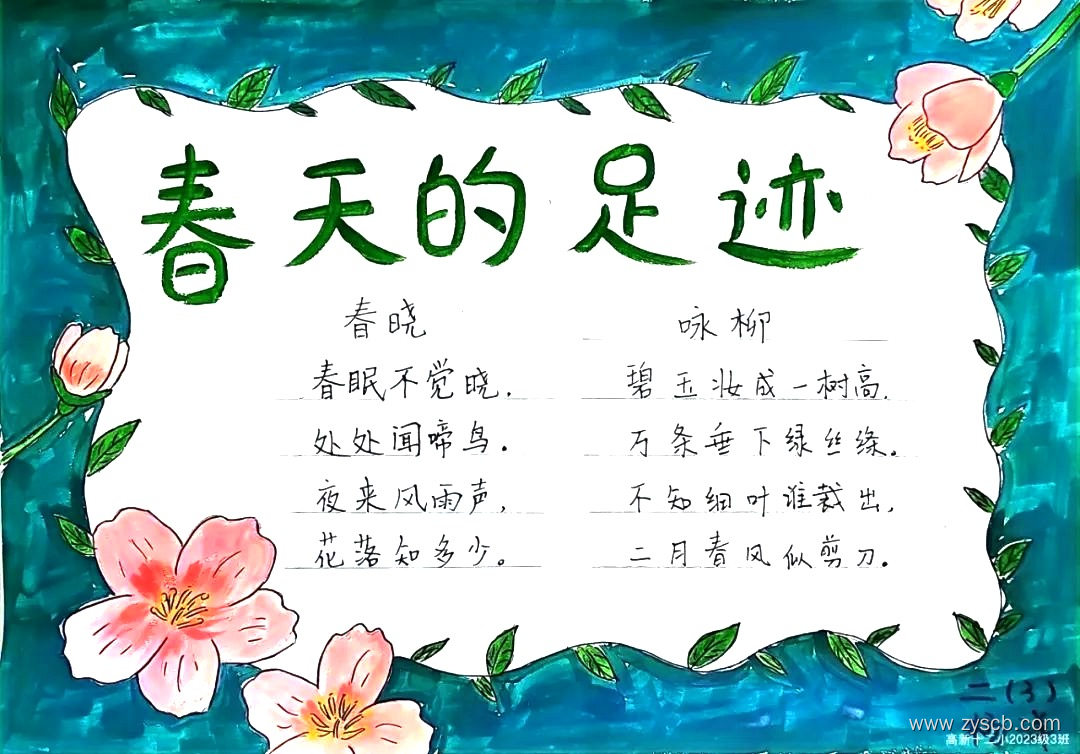 春天的足迹
春晓
春眠不觉晓，
处处闻啼鸟。
夜来风雨声，
花落知多少。
咏柳
碧玉妆成一树高，
万条垂下绿丝绦。
不知细叶谁裁出，
二月春风似剪刀。
二(3)
www.zyscb.com
高新十二小2023级3班